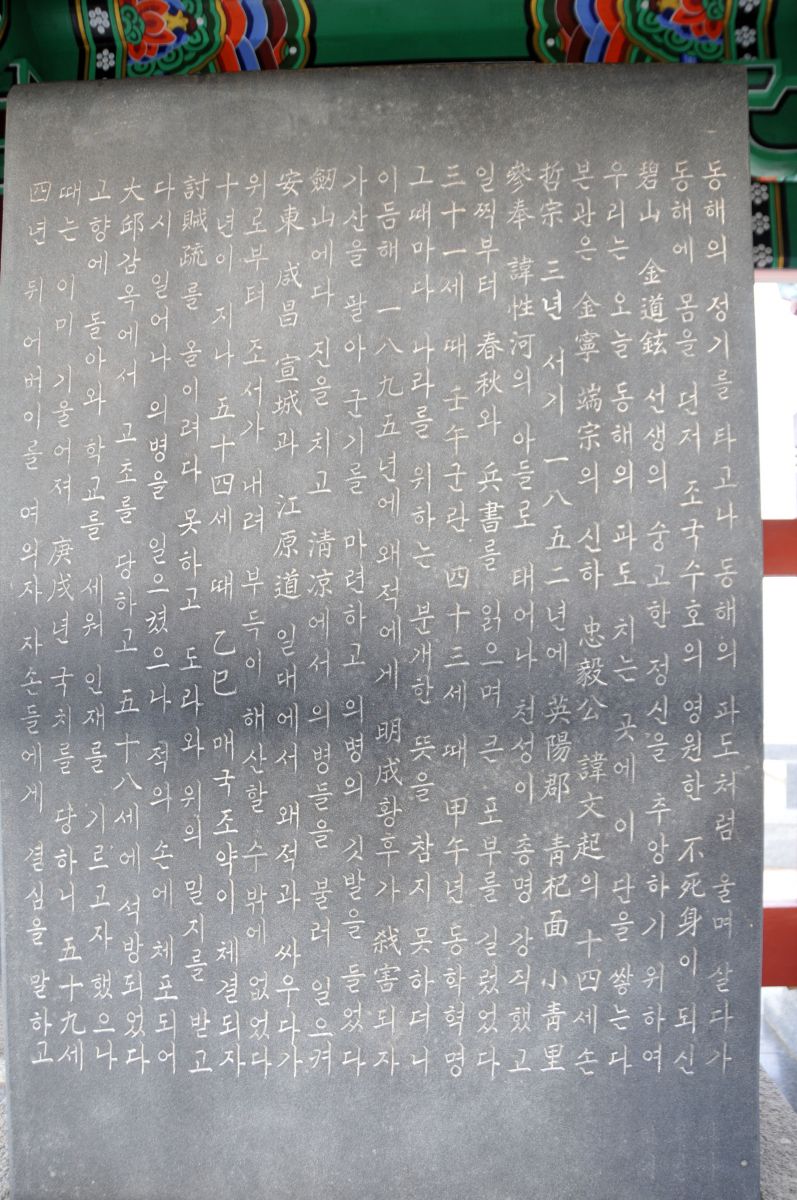 동해의 정기를 타고나 동해의 파도처럼 울며 살다가
동해에 몸을 던저 조국수호의 영원한 不死身이 되신
碧山 金道鉉 선생의 숭고한 정신을 추앙하기 위하여
우리는 오늘 동해의 파도 치는 곳에 이 단을 쌓는다
본관은 金寧 端宗의 신하 忠毅公 諱文起의 十四세손
哲宗 三년 서기 一八五二년에 英陽郡 靑杞面 小靑里
參奉 諱性河의 아들로 태어나 천성이 총명 강직했고
일찍부터 春秋와 兵書를 읽으며 큰 포부를 길렀었다
三十一세 때 壬午군란 四十三세 때 甲午년 동학혁명
그때마다 나라를 위하는 분개한 뜻을 참지 못하더니
이듬해 一八九五년에 왜적에게 明成황후가 弑害되자
가산을 팔아 군기를 마련하고 의병의 깃발을 들었다
劒山에다 진을 치고 淸凉에서 의병들을 불러 일으켜
安東 咸昌 宣城과 江原道 일대에서 왜적과 싸우다가
위로부터 조서가 내려 부득이 해산할 수 밖에 없었다
十년이 지나 五十四세 때 乙巳 매국조약이 체결되자
討賊疏를 올이려다 못하고 도라와 위의 밀지를 받고
다시 일어나 의병을 일으켰으나 적의 손에 체포되어
大邱감옥에서 고초를 당하고 五十八세에 석방되었다
고향에 돌아와 학교를 세워 인재를 기르고자 했으나
때는 이미 기울어져 庚戌년 국치를 당하니 五十九세
四년 뒤 어버이를 여의자 자손들에게 결심을 말하고